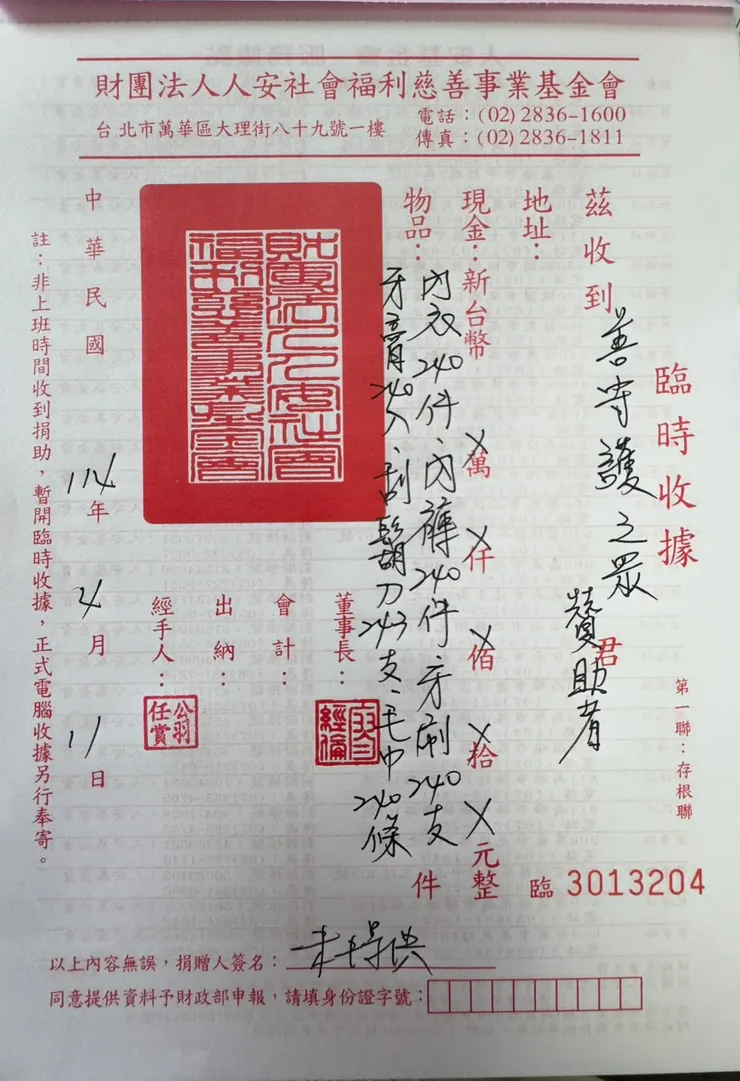 財團法人人安社會福利慈善事業基金會
台北市萬華區大理街八十九號一樓
電話：(02)2836-1600
傳真：(02)2836-1811
臨時收據
第一聯：存根聯
臨 3013204
茲收到 善守護之眾 君
贊助者
地址：
現金：新台幣 X萬 X仟 X佰 X拾 X元整
物品：內衣240件、內褲240件、牙刷240支 件
牙膏240入、刮鬍刀243支、毛巾240條
董事長：
會計：
出納：
經手人：
公羽
任賞
財團法人人安社會
福利慈善事業基金會
中華民國 114年 4月 11日
註：非上班時間收到捐助，暫開臨時收據，正式電腦收據另行奉寄。
以上內容無誤，捐贈人簽名：
同意提供資料予財政部申報，請填身份證字號：